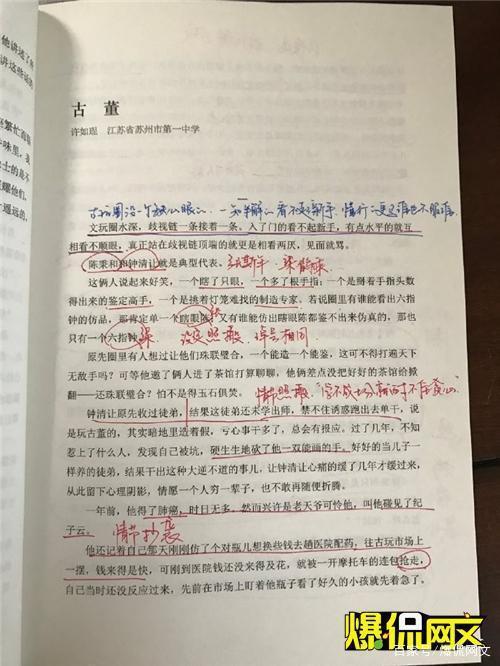 古 董
许如琨 江苏省苏州市第一中学
一
文玩圈水深，歧视链一条接着一条，入了门的看不起新手，有点水平的就互
相看不顺眼，真正站在歧视链顶端的就更是相看两厌，见面就骂。
陈秉和和钟清让就是典型代表。
这俩人说起来好笑，一个瞎了只眼，一个多了根手指；一个是掰着手指头数
得出来的鉴定高手，一个是挑着灯笼难找的制造专家。若说圈里有谁能看出六指
钟的仿品，那肯定单一个瞎眼陈；又有谁能仿出瞎眼陈都鉴不出来仿真的，那也
只有一个六指钟。
没完 照搬 绰号相同
原先圈里有人想过让他们珠联璧合，一个能造一个能鉴，这可不得打遍天下
无敌手吗？可等他邀了俩人进了茶馆打算聊聊，他俩差点没把好好的茶馆给掀
翻——还珠联璧合？怕不是得玉石俱焚。
情节照搬
钟清让原先收过徒弟，结果这徒弟还未学出师，禁不住诱惑跑出去单干，说
是玩古董的，其实暗地里造着假，亏心事干多了，总会有报应。过了几年，不知
惹上了什么人，发现自己被坑，硬生生地砍了他一双能画的手。好好的当儿子一
样养的徒弟，结果干出这种大逆不道的事儿，让钟清让心痛的缓了几年才缓过来，
从此留下心理阴影，情愿一个人穷一辈子，也不敢再随便折腾。
一年前，他得了肺癌，时日无多。然而兴许是老天爷可怜他，叫他碰见了纪
子云。
情节抄袭
他还记着自己那天刚刚仿了个对瓶儿想换些钱去趟医院配药，往古玩市场上
一摆，钱来得是快，可刚到医院钱还没来得及花，就被一开摩托车的连包抢走，
自己当时还没反应过来，先前在市场上盯着他瓶子看了好久的小孩就先着急了。
爆侃网文
百家号/爆侃网文